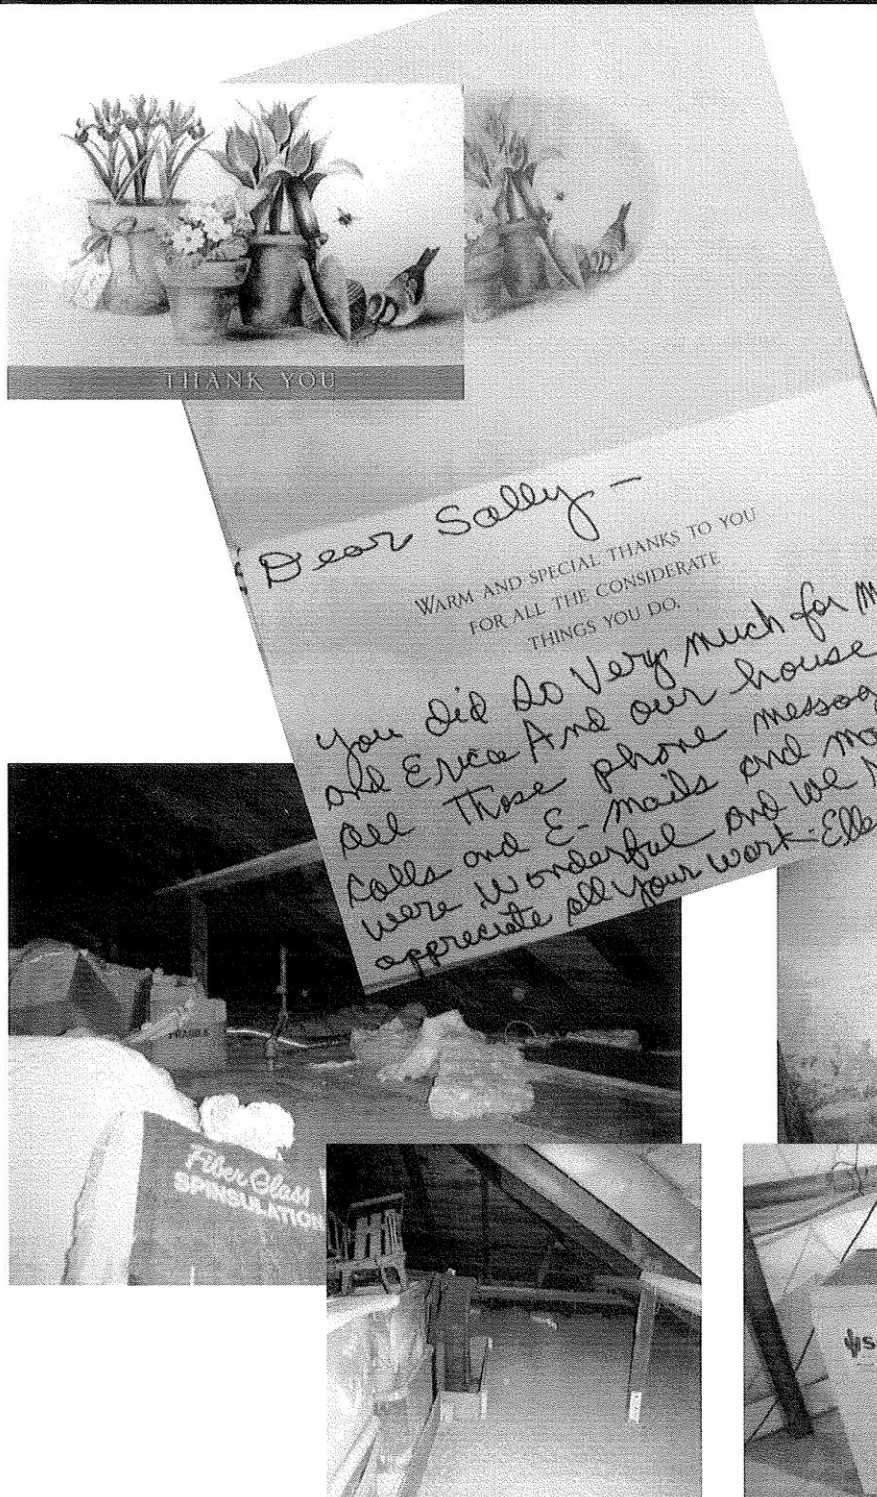 THANK YOU
Dear Sally –
WARM AND SPECIAL THANKS TO YOU
FOR ALL THE CONSIDERATE
THINGS YOU DO.
you did so very much for
and Erica And our house
all those phone
calls and E-mails and
were wonderful and we
appreciate all your work -
FRAGILE
Fiber Glass
SPINSULATION